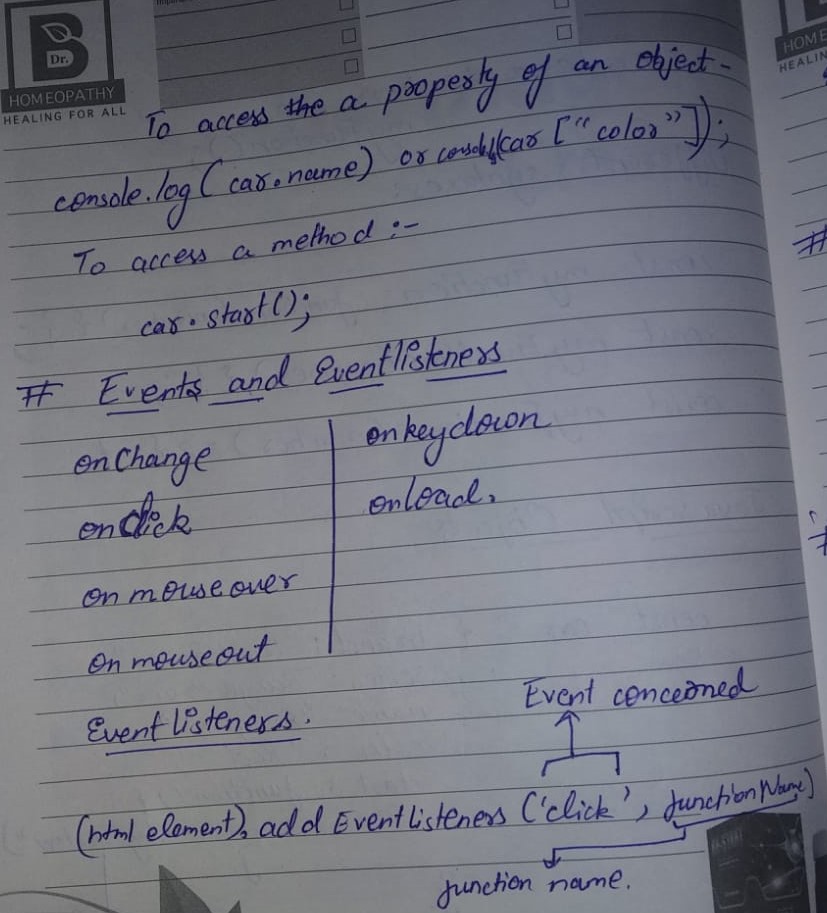 Dr.
HOMEOPATHY
HEALING FOR ALL
To access the a property of an object -
console.log( car.name) or console.(car ["color"]);
To access a method :-
car. start();
# Events and Eventlisteners
onChange
onclick
onmouseover
onmouseout
onkeydown
onload.
Event listeners.
Event concerned
(html element). add EventListeners ('click', functionName)
function name.
HOME
HEALIN
#